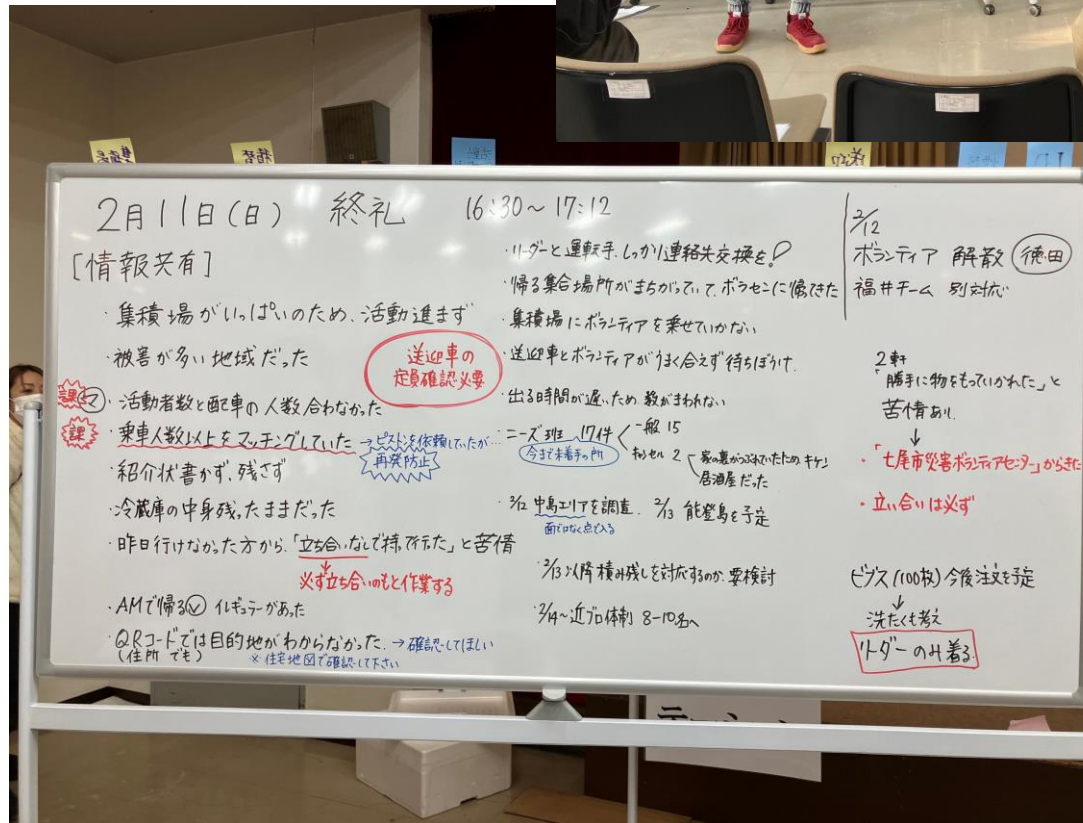 2月11日(日) 終礼 16:30～17:12
[情報共有]
・集積場がいっぱいのため、活動進まず
・被害が多い地域だった
送迎車の
定員確認必要
課 マ ・活動者数と配車の人数合わなかった
課 ・乗車人数以上をマッチングしていた →ピストンを依頼していたが…
再発防止
・紹介状書かず、残さず
・冷蔵庫の中身残ったままだった
・昨日行けなかった方から、「立ち合いなしで持って行った」と苦情
↓
必ず立ち合いのもと作業する
・AMで帰るV イレギュラーがあった
・QRコードでは目的地がわからなかった。→確認してほしい
(住所でも) ※住宅地図で確認して下さい
・リーダーと運転手、しっかり連絡先交換を!
・帰る集合場所がまちがっていて、ボラセンに帰ってきた
・集積場にボランティアを乗せていかない
・送迎車とボランティアがうまく合えず待ちぼうけ。
・出る時間が遅いため、数がまわれない
・ニーズ班 17件
一般 15
キャンセル 2
家の裏がつぶれていたため、キケン
居酒屋だった
今まで未着手の所
・2/12 中島エリアを調査、2/13 能登島を予定
面ではなく点で入る
・2/13以降積み残しを対応するのか、要検討
・2/14～近プロ体制 8-10名へ
2/12
ボランティア 解散 徳田
福井チーム 別対応
2軒
「勝手に物をもっていかれた」と
苦情あり。
↓
・「七尾市災害ボランティアセンター」からきた
・立い合いは必ず
ビブス(100枚)今後注文予定
↓
洗たくも考え
リーダーのみ着る